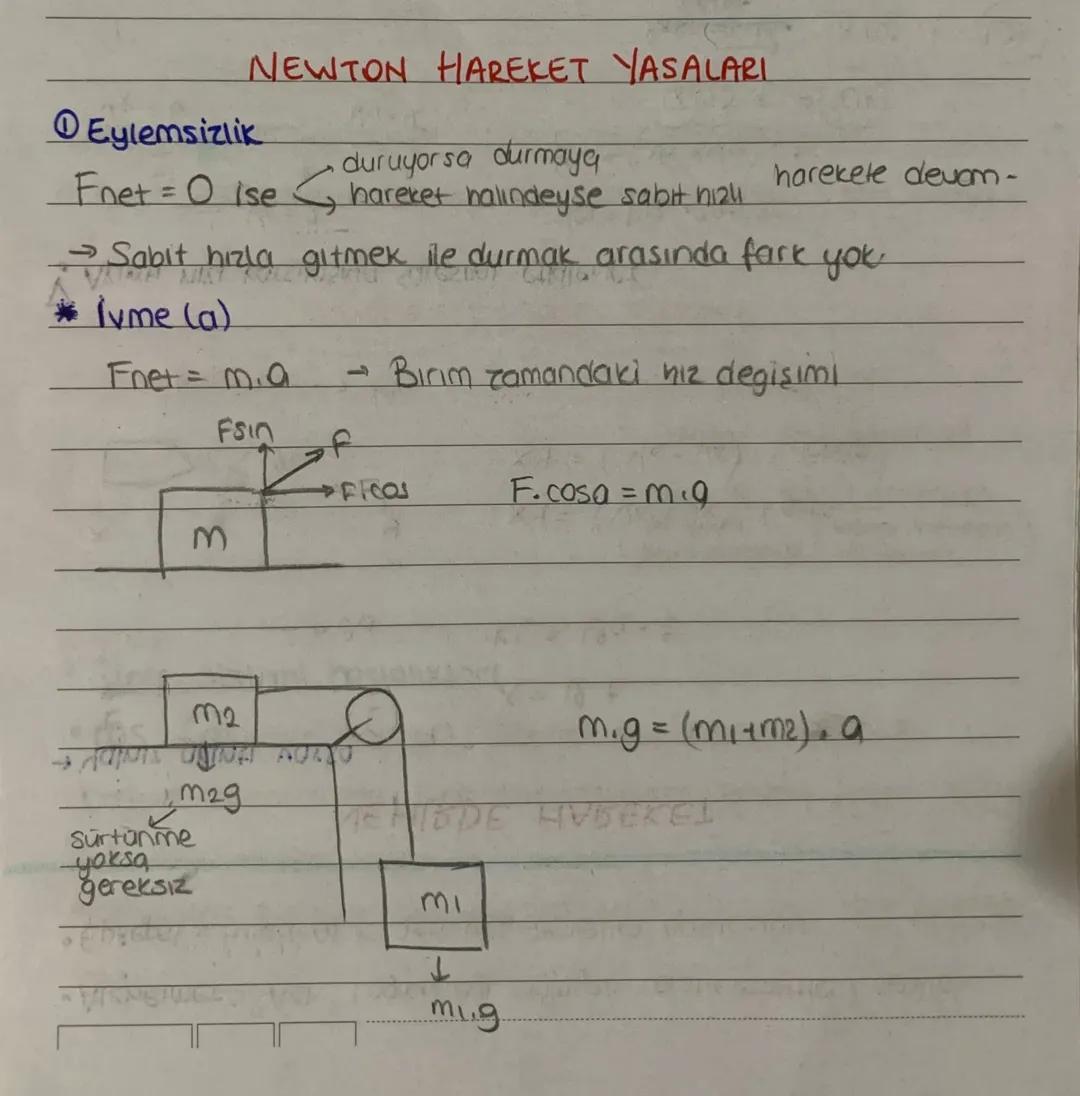 NEWTON HAREKET YASALARI
① Eylemsizlik
duruyorsa durmaya
Fnet = 0 ise hareket halindeyse sabit hızlı harekete devam-
→ Sabit hızla gitmek ile durmak arasında fark yok.
* İvme (a)
Fnet = m.a → Birim zamandaki hız değişimi
Fsin F
Fcos F.cosa = m.a
m
m2 m.g = (m1+m2).a
m2g
sürtünme
yoksa
gereksiz
m1
m1.g